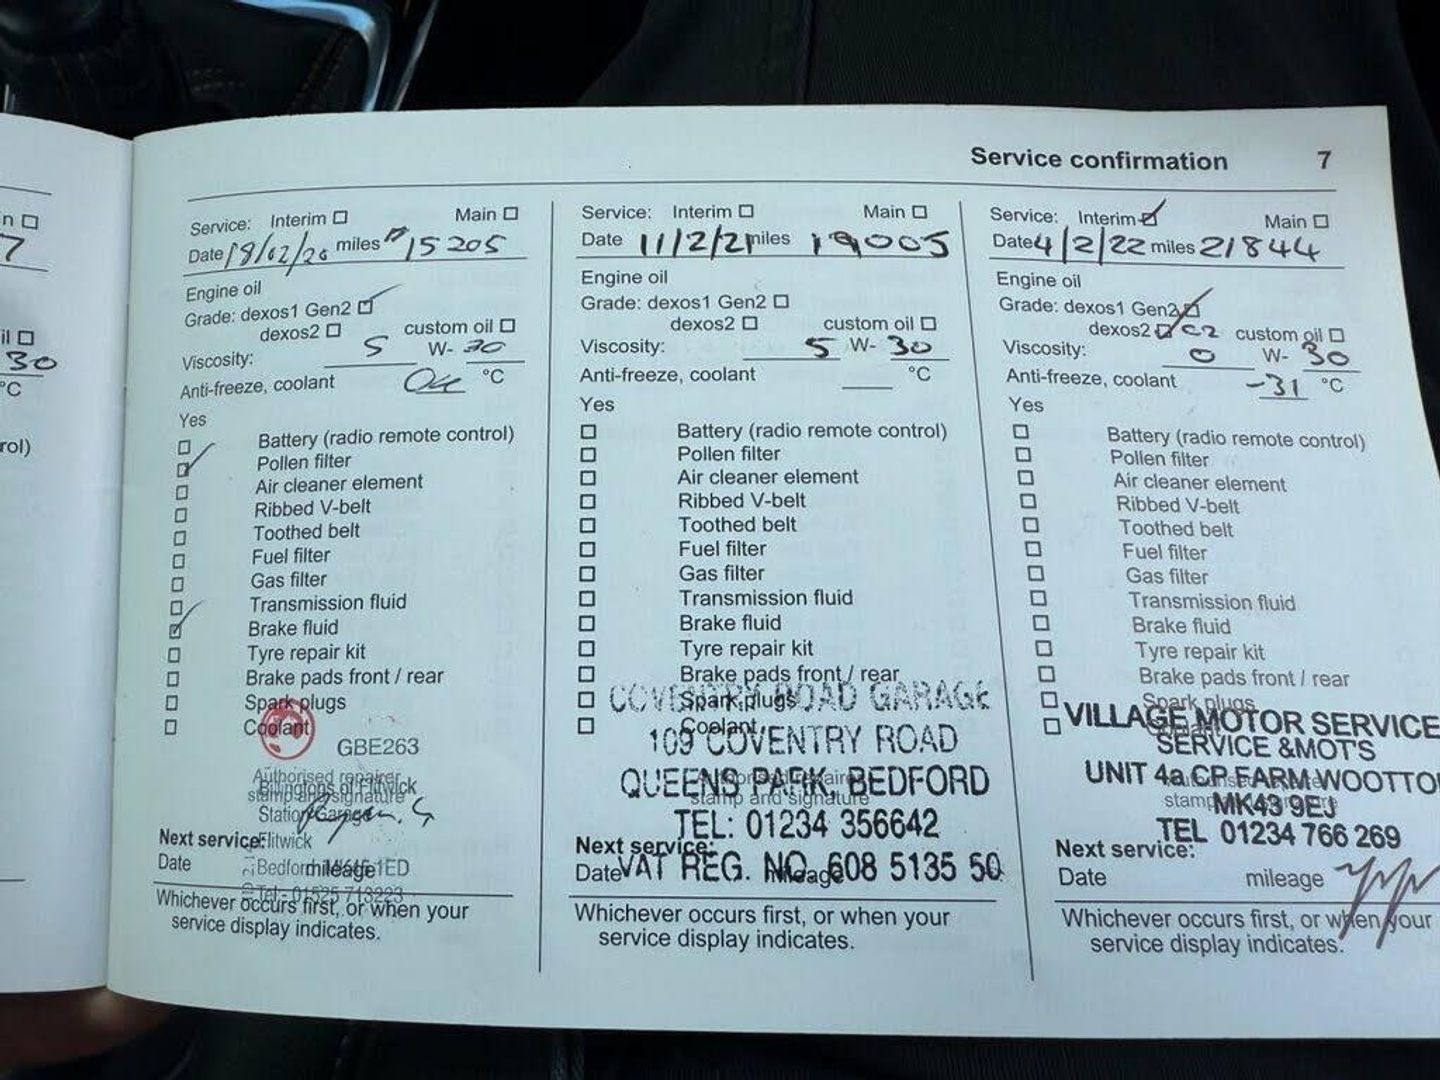 Service confirmation 7
n
7
il
30
°C
rol)
Service: Interim Main
Date 18/02/20 miles 15205
Engine oil
Grade: dexos1 Gen2
dexos2 custom oil
Viscosity: 5 W- 30
Anti-freeze, coolant °C
Yes
Battery (radio remote control)
Pollen filter
Air cleaner element
Ribbed V-belt
Toothed belt
Fuel filter
Gas filter
Transmission fluid
Brake fluid
Tyre repair kit
Brake pads front / rear
Spark plugs
Coolant
GBE263
Authorised repairer
Billingtons of Flitwick
stamp and signature
Station Garage
Next service: Flitwick
Date Bedford mileage 1ED
Tel - 01525 713223
Whichever occurs first, or when your
service display indicates.
Service: Interim Main
Date 11/2/21 miles 19005
Engine oil
Grade: dexos1 Gen2
dexos2 custom oil
Viscosity: 5 W- 30
Anti-freeze, coolant °C
Yes
Battery (radio remote control)
Pollen filter
Air cleaner element
Ribbed V-belt
Toothed belt
Fuel filter
Gas filter
Transmission fluid
Brake fluid
Tyre repair kit
Brake pads front / rear
Spark plugs
COVENTRY ROAD GARAGE
Coolant
109 COVENTRY ROAD
QUEENS PARK, BEDFORD
Authorised repairer
stamp and signature
TEL: 01234 356642
Next service:
Date mileage
VAT REG. NO. 608 5135 50
Whichever occurs first, or when your
service display indicates.
Service: Interim Main
Date 4/2/22 miles 21844
Engine oil
Grade: dexos1 Gen2
dexos2 C2 custom oil
Viscosity: 0 W- 30
Anti-freeze, coolant -31 °C
Yes
Battery (radio remote control)
Pollen filter
Air cleaner element
Ribbed V-belt
Toothed belt
Fuel filter
Gas filter
Transmission fluid
Brake fluid
Tyre repair kit
Brake pads front / rear
Spark plugs
VILLAGE MOTOR SERVICE
SERVICE &MOT'S
UNIT 4a CP FARM WOOTTO
stamp
MK43 9EJ
TEL 01234 766 269
Next service:
Date mileage
Whichever occurs first, or when your
service display indicates.